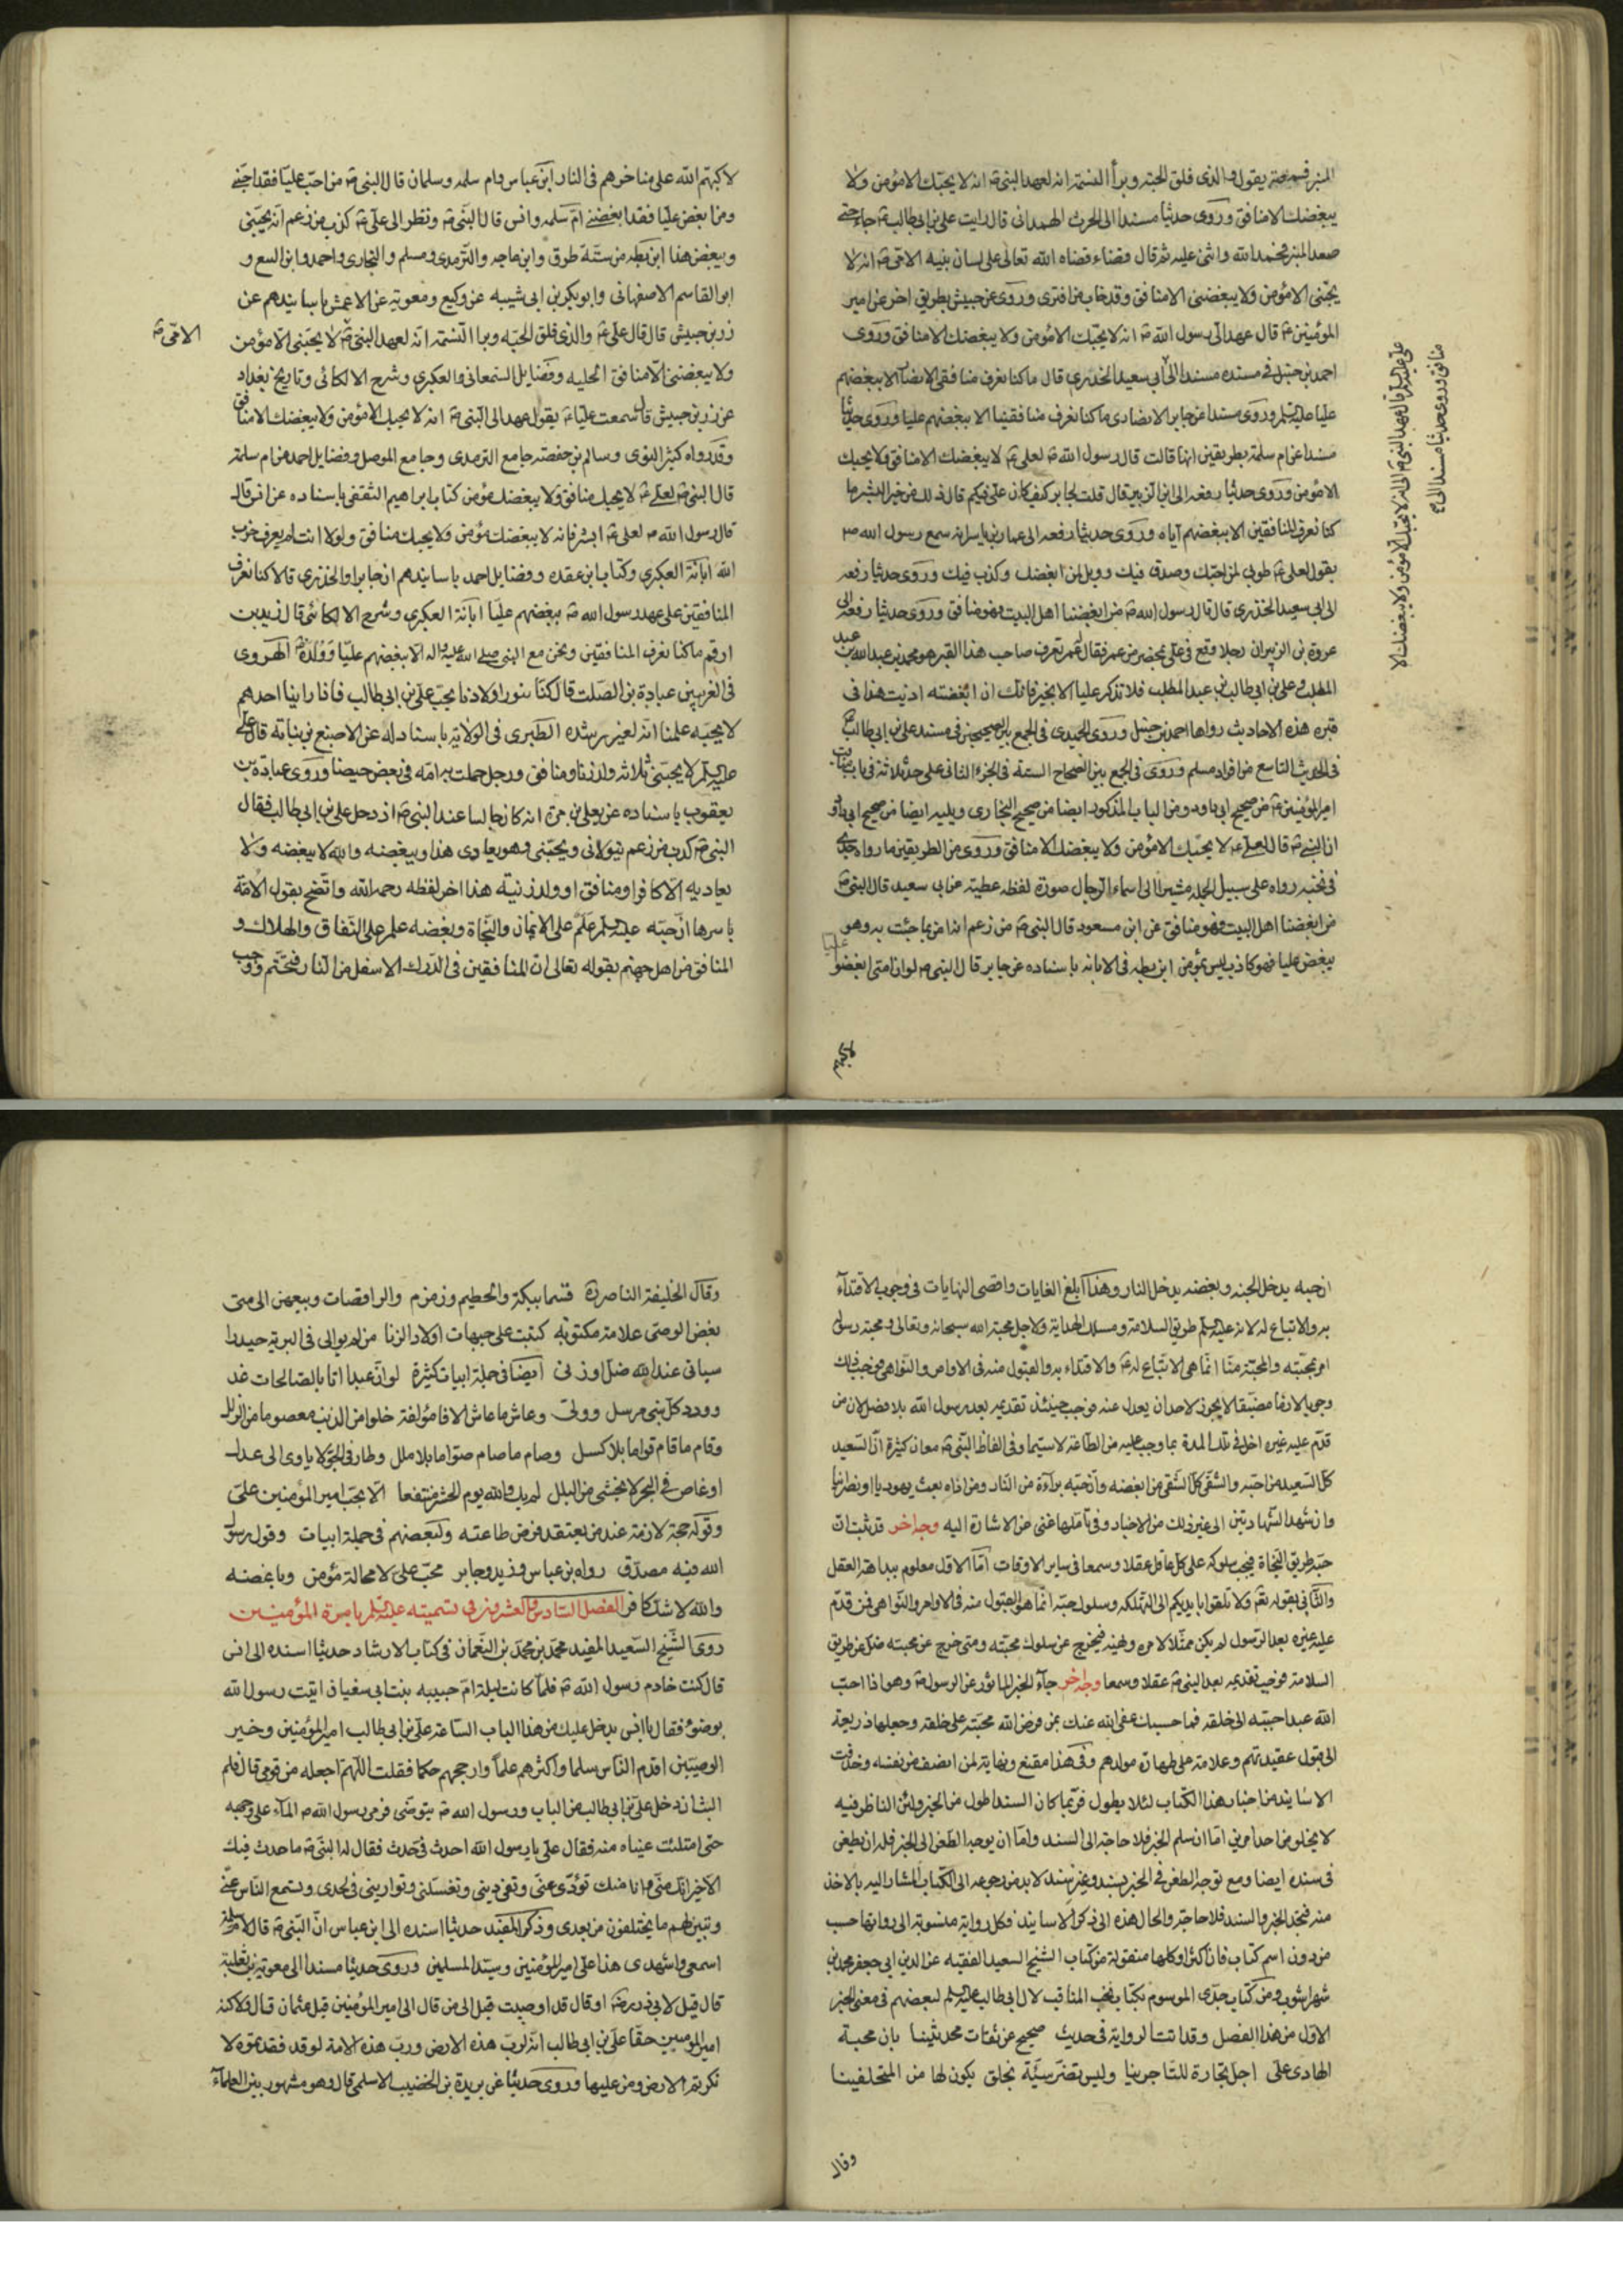 المنبر فسمعته يقول والذي فلق الحبة وبرأ النسمة انه لعهد النبي ص انه لا يحبك الا مؤمن ولا
يبغضك الا منافق وروى حديثا مسندا الى الحرث الهمداني قال رايت علي بن ابي طالب ع جاء حتى
صعد المنبر فحمد الله واثنى عليه ثم قال قضاء قضاه الله تعالى على لسان نبيه الامي ص انه لا
يحبني الا مؤمن ولا يبغضني الا منافق وقد خاب من افترى وروى عن حبيش بطريق اخر عن امير
المؤمنين ع قال عهد الي رسول الله ص انه لا يحبك الا مؤمن ولا يبغضك الا منافق وروى
احمد بن حنبل في مسنده مسندا الى ابي سعيد الخدري قال ما كنا نعرف منافقي الانصار الا ببغضهم
عليا عليه السلم وروى مسندا عن جابر الانصاري ما كنا نعرف منافقينا الا ببغضهم عليا وروى حديثا
مسندا عن ام سلمة بطريقين انها قالت قال رسول الله ص لعلي ع لا يبغضك الا منافق ولا يحبك
الا مؤمن وروى حديثا رفعه الى ابي الزبير قال قلت لجابر كيف كان علي فيكم قال ذلك من خير البشر ما
كنا نعرف المنافقين الا ببغضهم اياه وروى حديثا رفعه الى عمار بن ياسر انه سمع رسول الله ص
يقول لعلي ع طوبى لمن احبك وصدق فيك وويل لمن ابغضك وكذب فيك وروى حديثا رفعه
الى ابي سعيد الخدري قال قال رسول الله ص من ابغضنا اهل البيت فهو منافق وروى حديثا رفعه الى
عروة بن الزبير ان رجلا وقع في علي بمحضر من عمر فقال له عمر تعرف صاحب هذا القبر هو محمد بن عبد الله بن عبد
المطلب وعلي بن ابي طالب بن عبد المطلب فلا تذكر عليا الا بخير فانك ان ابغضته اذيت هذا في
قبره هذه الاحاديث رواها احمد بن حنبل وروى الحميدي في الجمع بين الصحيحين في مسند علي بن ابي طالب ع
في الحديث التاسع من افراد مسلم وروى في الجمع بين الصحاح الستة في الجزء الثاني على حد ثلاثة في باب مناقب
امير المؤمنين ع من صحيح ابي داود ومن الباب المذكور ايضا من صحيح البخاري ويليه ايضا من صحيح ابي داود
ان النبي ص قال لعلي ع لا يحبك الا مؤمن ولا يبغضك الا منافق وروى من الطريقين ما رواه جدي
في نخبه رواه على سبيل الجملة مشيرا الى اسماء الرجال صورة لفظه عطية عن ابي سعيد قال النبي ص
من ابغضنا اهل البيت فهو منافق عن ابن مسعود قال النبي ص من زعم انه امن بما جئت به وهو
يبغض عليا فهو كاذب ليس بمؤمن ابن بطه في الابانه باسناده عن جابر قال النبي ص لو ان امتي ابغضوا
عليا
لاكبهم
علي عليه السلم قال لعهد النبي ص الى انه لا يحبك الا مؤمن ولا يبغضك الا
منافق وروى حديثا مسندا الى ع
لاكبهم الله على مناخرهم في النار ابن عباس وام سلمه وسلمان قال النبي ص من احب عليا فقد احبني
ومن ابغض عليا فقد ابغضني ام سلمه وانس قال النبي ص ونظر الى علي ع كذب من زعم انه يحبني
ويبغض هذا ابن بطه من ستة طرق وابن ماجه والترمدي ومسلم والبخاري واحمد وابن السع و
ابو القاسم الاصفهاني وابو بكر بن ابي شيبه عن وكيع ومعوية عن الاعمش باسانيدهم عن
زر بن حبيش قال قال علي ع والذي فلق الحبه وبرا النسمة انه لعهد النبي ص لا يحبني الا مؤمن
الامي ص
ولا يبغضني الا منافق الحليه وفضايل السمعاني والعكبري وشرح الالكائي وتاريخ بغداد
عن زر بن حبيش قال سمعت عليا ع يقول عهد الي النبي ص انه لا يحبك الا مؤمن ولا يبغضك الا منافق
وقد رواه كثير النوى وسالم بن حفصة جامع الترمدي وجامع الموصل وفضايل احمد من ام سلمة
قال النبي ص لعلي ع لا يحبك منافق ولا يبغضك مؤمن كتاب ابراهيم الثقفي باسناده عن انس قال
قال رسول الله ص لعلي ع ابشر فانه لا يبغضك مؤمن ولا يحبك منافق ولولا انت لم يعرف حزب
الله ابانة العكبري وكتاب ابن عقده وفضايل احمد باسانيدهم ان جابرا والخدري قالا كنا نعرف
المنافقين على عهد رسول الله ص ببغضهم عليا ابانة العكبري وشرح الالكائي قال زيد بن
ارقم ما كنا نعرف المنافقين ونحن مع النبي صلى الله عليه واله الا ببغضهم عليا وولده ع الهروى
في الغريبين عبادة بن الصلت قال كنا نبور اولادنا بحب علي بن ابي طالب فاذا راينا احدهم
لا يحبه علمنا انه لغير رشده الطبري في الولاية باسناد له عن الاصبغ بن نباتة قال علي
عليه السلم لا يحبني ثلاثه ولد زنا ومنافق ورجل حملت به امه في بعض حيضها وروى عبادة بن
يعقوب باسناده عن يعلي بن مرة انه كان جالسا عند النبي ص اذ دخل علي بن ابي طالب فقال
النبي ص كذب من زعم يتولاني ويحبني وهو يعادي هذا ويبغضه والله لا يبغضه ولا
يعاديه الا كافر او منافق او ولد زنية هذا اخر لفظه رحمه الله واتضح بقول الامة
باسرها ان حبه عليه السلم علم على الايمان والنجاة وبغضه علم على النفاق والهلاك و
المنافق من اهل جهنم بقوله تعالى ان المنافقين في الدرك الاسفل من النار فتحتم ووجب
ان حبه يدخل الجنه وبغضه يدخل النار وهذا ابلغ الغايات واقصى النهايات في وجوب الاقتداء
به والاتباع له لانه عليه السلم طريق السلامة ومسلك الهداية ولاجل محبة الله سبحانه وتعالى ومحبة رسوله
امر بمحبته والمحبة منا انما هي الاتباع له ع والاقتداء به والقبول منه في الاوامر والنواهي فوجب ذلك
وجوبا لازما مضيقا لا يجوز لاحد ان يعدل عنه فوجب حينئذ تقديمه بعد رسول الله بلا فصل لان من
قدم عليه غيره اخل في تلك المدة بما وجب عليه من الطاعة لا سيما وفي الفاظ النبي ص معان كثيرة ان السعيد
كل السعيد من احبه والشقي كل الشقي من ابغضه وان حبه براءة من النار ومن اذاه بعث يهوديا او نصرانيا
وان شهد الشهادتين الى غير ذلك من الاخبار وفي تاملها غنى عن الاشارة اليه وجه اخر قد ثبت ان
حبه طريق النجاة فيجب سلوكه على كل عاقل عقلا وسمعا في ساير الاوقات اما الاول معلوم ببداهة العقل
والثاني بقوله تع ولا تلقوا بايديكم الى التهلكه وسلوك حبه انما هو القبول منه في الاوامر والنواهي فمن قدم
عليه غيره بعد الرسول لم يكن ممثلا لامره ونهيه فيخرج عن سلوك محبته ومتى خرج عن محبته ضل عن طريق
السلامة فوجب تقديمه بعد النبي ص عقلا وسمعا وجه اخر جاء الخبر الماثور عن الرسول ص وهو اذا احب
الله عبدا حببه الى خلقه فما حسبك عفى الله عنك بمن فرض الله محبته على خلقه وجعلها ذريعة
الى قبول عقيدتهم وعلامة على طهارة مولدهم وفي هذا مقنع ونهاية لمن انصف من نفسه وحذفت
الاسانيد من اخبار هذا الكتاب لئلا يطول فربما كان السند اطول من الخبر ولئن الناظر فيه
لا يخلو من احد امرين اما ان سلم الخبر فلا حاجة الى السند واما ان يوجه الطعن الى الخبر فله ان يطعن
في سنده ايضا ومع توجه الطعن في الخبر بسند وغير سند لا بد من رجوعه الى الكتاب المشار اليه بالاخذ
منه فيجد الخبر والسند فلا حاجة والحال هذه الى ذكر الاسانيد فكل رواية منسوبة الى رواتها حسب
من دون اسم كتاب فان اكثرها وكلها منقولة من كتاب الشيخ السعيد الفقيه عز الدين ابي جعفر محمد بن
شهراشوب ومن كتاب جدي الموسوم بكتاب نخب المناقب لال ابي طالب عليه السلم لبعضهم في معنى الخبر
الاول من هذا الفصل وقد اتت الرواية في حديث صحيح عن ثقات محدثينا بان محبة
الهادي علي اجل تجارة للتاجرينا وليس تضر سيئة بخلق يكون لها من المتخلفينا
وقال
وقال الخليفة الناصر ره قسما ببكة والحطيم وزمزم والراقصات وسعيهن الى منى
بغض الوصي علامة مكتوبه كتبت على جبهات اولاد الزنا من لم يوالي في البرية حيدرا
سيان عند الله صلى او زنى ايضا في جملة ابيات كثيرة لو ان عبدا اتا بالصالحات غد
وود كل نبي مرسل وولي وعاش ما عاش الافا مؤلفة خلوا من الذنب معصوما من الزلل
وقام ما قام قواما بلا كسل وصام ما صام صواما بلا ملل وطار في الجو لا ياوى الى عدل
او غاص في البحر لا يخشى من البلل لم يك والله يوم الحشر منتفعا الا بحب امير المؤمنين علي
وقوله حجة لازمة عند من يعتقد فرض طاعته ولبعضهم في جملة ابيات وقول رسول
الله فيه مصدق رواه ابن عباس وزيد وجابر محب علي لا محالة مؤمن وباغضه
والله لا شك كافر الفصل السادس والعشرون في تسميته عليه السلم بامرة المؤمنين
روى الشيخ السعيد المفيد محمد بن محمد بن النعمان في كتاب الارشاد حديثا اسنده الى انس
قال كنت خادم رسول الله ص فلما كانت ليلة ام حبيبه بنت ابي سفيان اتيت رسول الله
بوضوء فقال يا انس يدخل عليك من هذا الباب الساعة علي بن ابي طالب امير المؤمنين وخير
الوصيين اقدم الناس سلما واكثرهم علما وارجحهم حكما فقلت اللهم اجعله من قومي قال فلم
البث ان دخل علي بن ابي طالب من الباب ورسول الله ص يتوضى فرمى رسول الله ص الماء على وجهه
حتى امتلئت عيناه منه فقال علي يا رسول الله احدث في حدث فقال له النبي ص ما حدث فيك
الا خير انك مني وانا منك تؤدي عني وتفي ديني وتغسلني وتواريني في لحدي وتسمع الناس عني
وتبين لهم ما يختلفون من بعدي وذكر المفيد حديثا اسنده الى ابن عباس ان النبي ص قال لام سلمة
اسمعي واشهدي هذا علي امير المؤمنين وسيد المسلمين وروى حديثا مسندا الى معوية بن ثعلبة
قال قيل لابي ذر رضه اوصي قال قد اوصيت قيل الى من قال الى امير المؤمنين قيل عثمان قال لا ولكنه
امير المومنين حقا علي بن ابي طالب انه لرب هذه الارض ورب هذه الامة لو قد فقدتموه لا
نكرتم الارض ومن عليها وروى حديثا عن بريدة بن الحضيب الاسلمي قال وهو مشهور بين العلماء